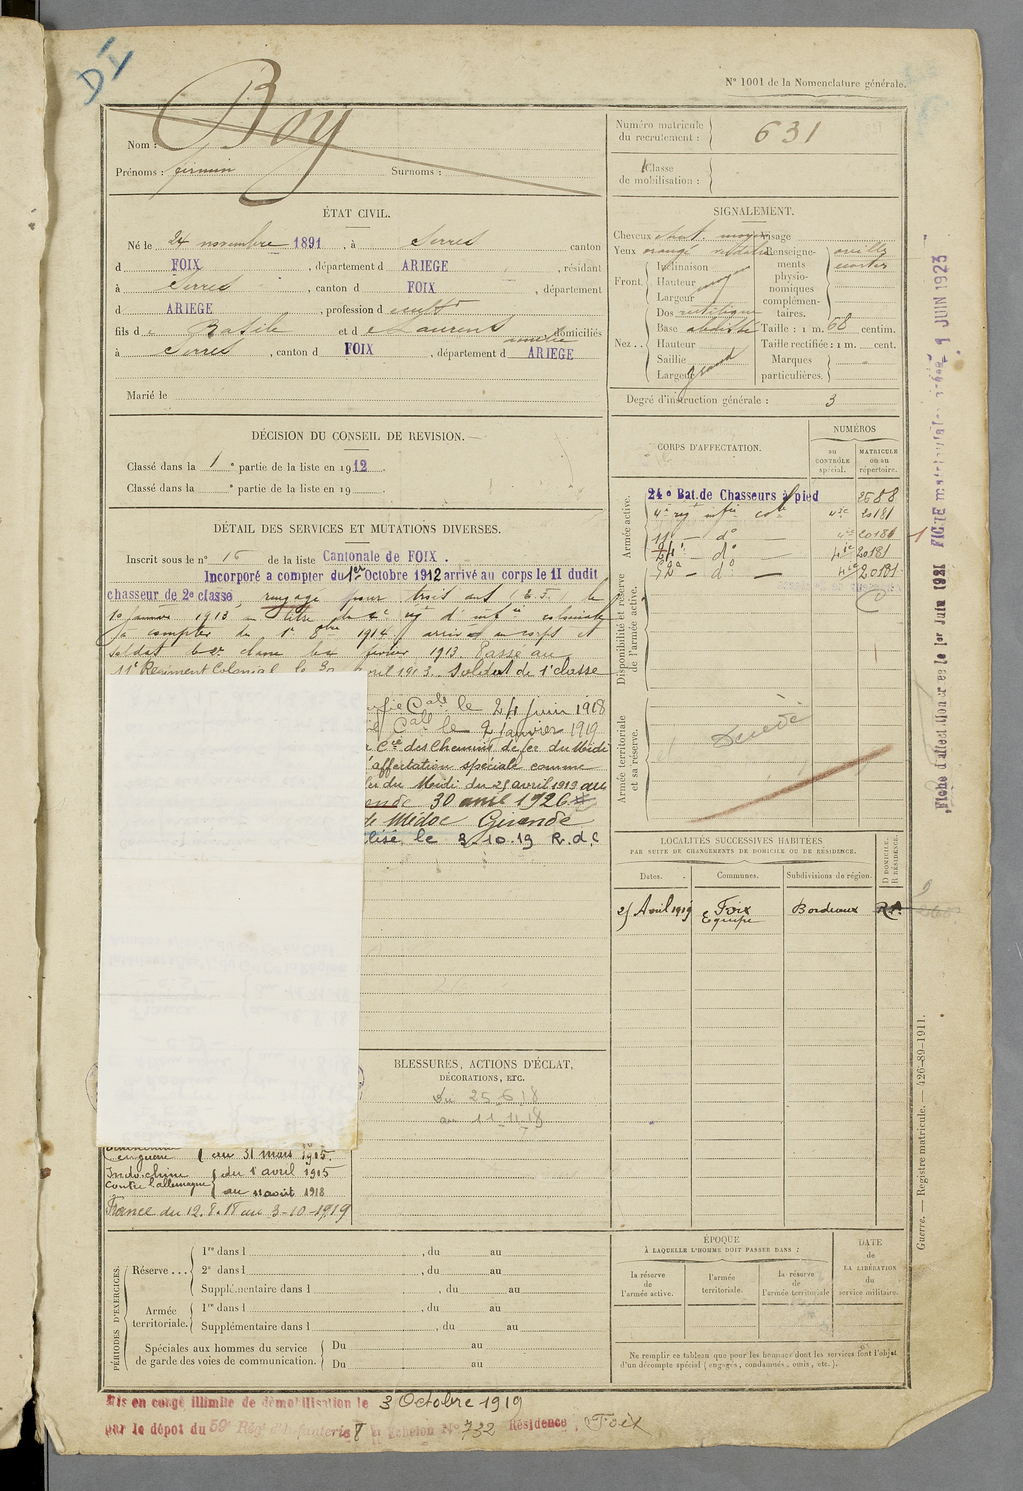 DI
N° 1001 de la Nomenclature générale.
Nom : Boy
Prénoms : firmin Surnoms :
Numéro matricule du recrutement : 631
Classe de mobilisation :
ÉTAT CIVIL.
Né le 24 novembre 1891, à Serres canton
d FOIX, département d ARIEGE, résidant
à Serres, canton d FOIX, département
d ARIEGE, profession d cultr
fils d e Basile et d e Laurens amélie domiciliés
à Serres, canton d FOIX, département d ARIEGE
Marié le
SIGNALEMENT.
Cheveux chat. moyen Visage
Yeux orangé
Renseignements physionomiques complémentaires. oreilles écartées
Front. Inclinaison
Hauteur moyen
Largeur
Nez. Dos rectiligne
Base abaissée
Hauteur
Saillie
Largeur grand
Taille : 1 m. 68 centim.
Taille rectifiée : 1 m. cent.
Marques particulières.
Degré d'instruction générale : 3
DÉCISION DU CONSEIL DE REVISION.
Classé dans la 1e partie de la liste en 1912
Classé dans la e partie de la liste en 19
DÉTAIL DES SERVICES ET MUTATIONS DIVERSES.
Inscrit sous le n° 16 de la liste Cantonale de FOIX
Incorporé à compter du 1er Octobre 1912 arrivé au corps le 11 dudit
chasseur de 2e classe, rengagé pour trois ans le
10 janvier 1913 au titre du 4e rég d'infie coloniale
à compter du 1er 8bre 1914 arrivé au corps et
soldat de 2e classe le février 1913 Passé au
11e Régiment Colonial le 30 avril 1913. Soldat de 1e classe
Cale le 24 juin 1918
Cale le 2 janvier 1919
Cie des Chemins de fer du Midi
affectation spéciale comme
du Midi du 25 avril 1919 au
30 avril 1926
de Médoc Gironde
le 3.10.19 R.d.C
CORPS D'AFFECTATION.
NUMÉROS
au CONTRÔLE spécial.
MATRICULE ou au répertoire.
Armée active.
24e Bat. de Chasseurs à pied 2588
4e reg infie cole 4ic 20181
11e – do – 4ic 20181
24e – do – 4ic 20181
52e – do – 4ic 20181
Disponibilité et réserve de l'armée active.
Armée territoriale et sa réserve.
LOCALITÉS SUCCESSIVES HABITÉES
PAR SUITE DE CHANGEMENTS DE DOMICILE OU DE RÉSIDENCE.
Dates. Communes. Subdivisions de région. D DOMICILE. R RÉSIDENCE.
25 Avril 1919 Foix Bordeaux R
Equipe
BLESSURES, ACTIONS D'ÉCLAT,
DÉCORATIONS, ETC.
Du 25.6.18
au 11.11.18
en guerre au 31 mars 1915.
Indo-chine du 1 avril 1915
contre l'allemagne au 11 août 1918
France du 12.8.18 au 3-10-1919
PÉRIODES D'EXERCICES.
Réserve... 1re dans l , du au
2e dans l , du au
Supplémentaire dans l , du au
Armée territoriale. 1re dans l , du au
Supplémentaire dans l , du au
Spéciales aux hommes du service de garde des voies de communication. Du au
Du au
ÉPOQUE
À LAQUELLE L'HOMME DOIT PASSER DANS :
la réserve de l'armée active.
l'armée territoriale.
la réserve de l'armée territoriale
DATE de LA LIBÉRATION du service militaire.
Ne remplir ce tableau que pour les hommes dont les services font l'objet
d'un décompte spécial (engagés, condamnés, omis, etc.).
Mis en congé illimité de démobilisation le 3 Octobre 1919
par le dépot du 59e Rég. d'Infanterie Echelon No 732 Résidence : Foix
Guerre. — Registre matricule. — 426-89-1911.
Fiche d'affect. le 1er Juin 1921 FICHE matricule 9 JUIN 1923